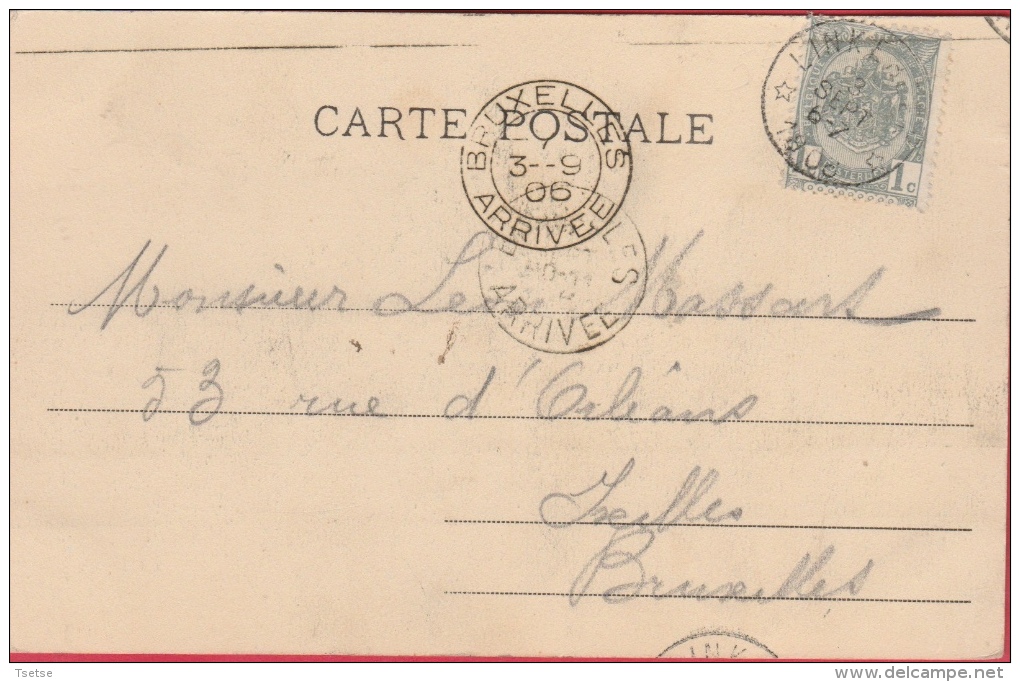 CARTE POSTALE
LINKE
3
SEPT
6-7
1906
1c
BRUXELLES
7
3--9
06
ARRIVÉE
ARRIVÉE
Monsieur Léon Massart
53 rue d'Orléans
Ixelles
Bruxelles
LINK
Tsetse
www.delcampe.net